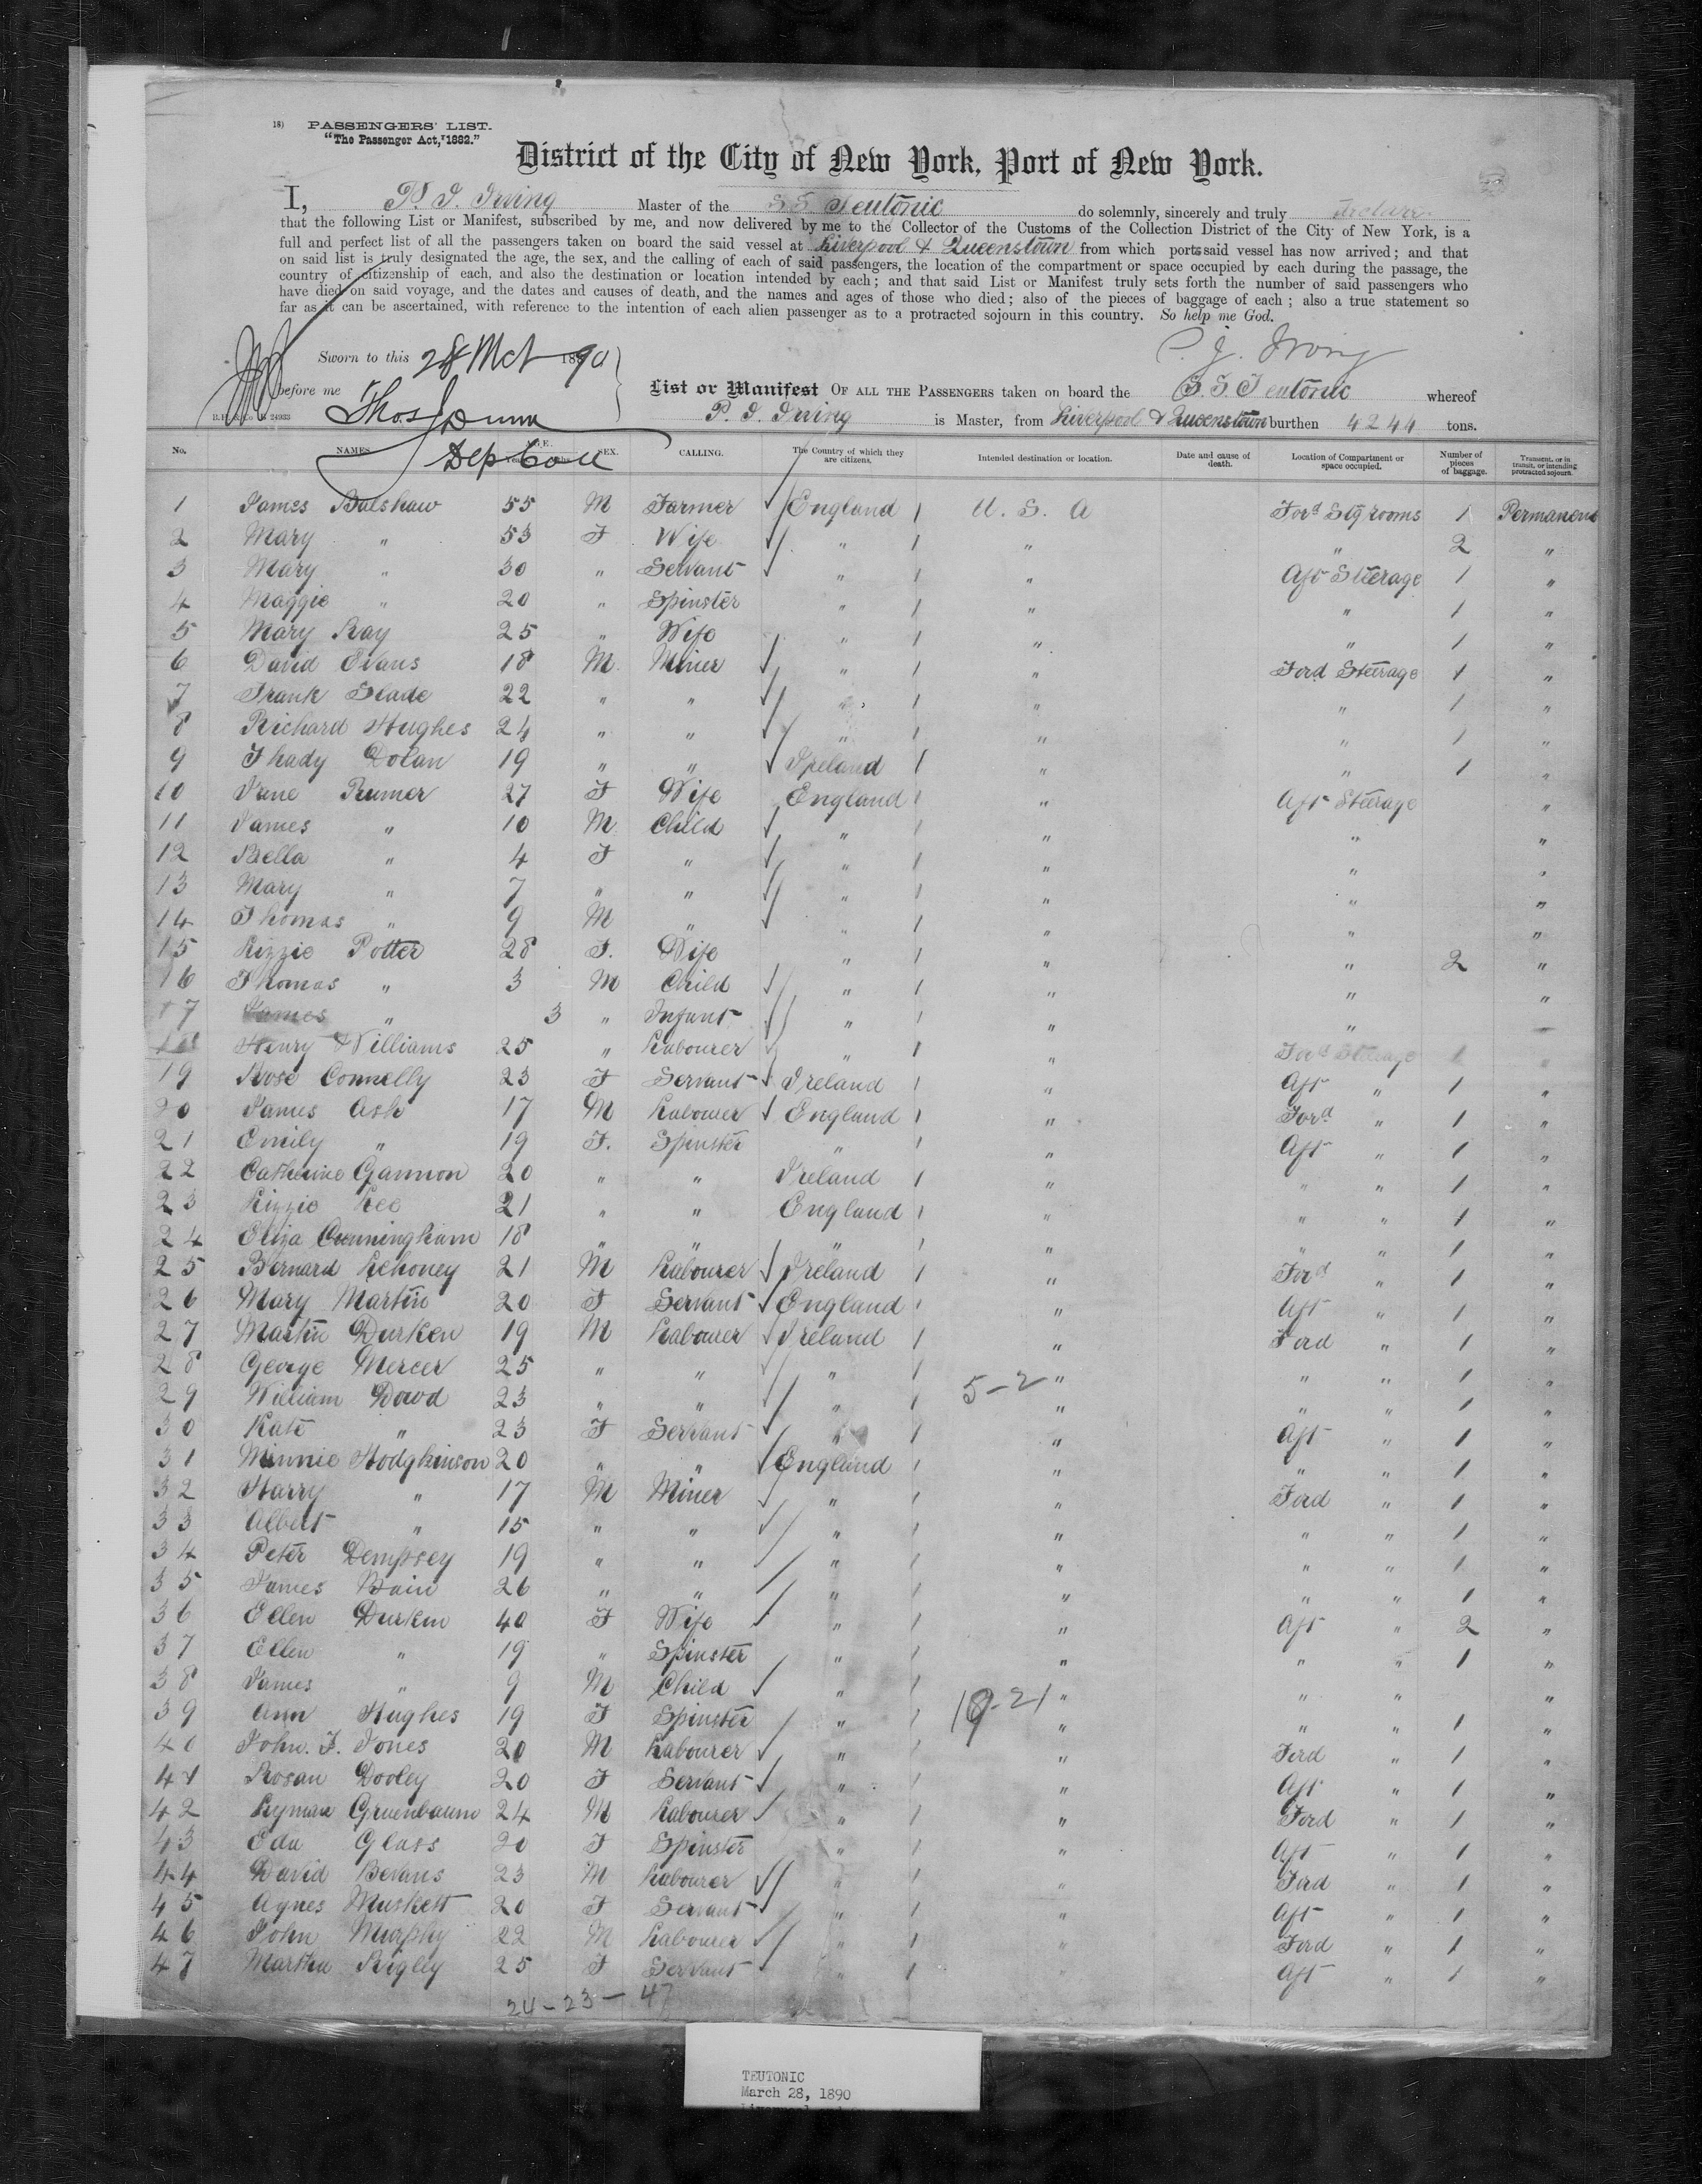 18) PASSENGERS' LIST.
"The Passenger Act, 1882."
District of the City of New York, Port of New York.
I, P. J. Irving Master of the S S Teutonic do solemnly, sincerely and truly declare
that the following List or Manifest, subscribed by me, and now delivered by me to the Collector of the Customs of the Collection District of the City of New York, is a
full and perfect list of all the passengers taken on board the said vessel at Liverpool & Queenstown from which ports said vessel has now arrived; and that
on said list is truly designated the age, the sex, and the calling of each of said passengers, the location of the compartment or space occupied by each during the passage, the
country of citizenship of each, and also the destination or location intended by each; and that said List or Manifest truly sets forth the number of said passengers who
have died on said voyage, and the dates and causes of death, and the names and ages of those who died; also of the pieces of baggage of each; also a true statement so
far as it can be ascertained, with reference to the intention of each alien passenger as to a protracted sojourn in this country. So help me God.
P. J. Irving
Sworn to this 28 Mch 1890
before me Thos J Dunn
Dep Coll
List or Manifest OF ALL THE PASSENGERS taken on board the S. S. Teutonic whereof
P. J. Irving is Master, from Liverpool & Queenstown burthen 4244 tons.
No. NAMES AGE. SEX. CALLING. The Country of which they are citizens. Intended destination or location. Date and cause of death. Location of Compartment or space occupied. Number of pieces of baggage. Transient, or in transit, or intending protracted sojourn.
1 James Balshaw 55 M Farmer England 1 U. S. A Ford Stg rooms 1 Permanent
2 Mary " 53 F Wife " 1 " " 2 "
3 Mary " 30 " Servant " 1 " Aft Steerage 1 "
4 Maggie " 20 " Spinster " 1 " " 1 "
5 Mary Kay 25 " Wife " 1 " " 1 "
6 David Evans 18 M Miner " 1 " Ford Steerage 1 "
7 Frank Slade 22 " " " 1 " " 1 "
8 Richard Hughes 24 " " " 1 " " 1 "
9 Thady Dolan 19 " " Ireland 1 " " 1 "
10 Jane Rumer 27 F Wife England 1 " Aft Steerage "
11 James " 10 M Child " 1 " " "
12 Bella " 4 F " " 1 " " "
13 Mary " 7 " " " 1 " " "
14 Thomas " 9 M " " 1 " " "
15 Lizzie Potter 28 F. Wife " 1 " " 2 "
16 Thomas " 3 M Child " 1 " " "
17 James " 3 " Infant " 1 " "
18 Henry Williams 25 " Labourer " 1 " Ford Steerage 1 "
19 Rose Connelly 23 F Servant Ireland 1 " Aft " 1 "
20 James Ash 17 M Labourer England 1 " Ford " 1 "
21 Emily " 19 F. Spinster " 1 " Aft " 1 "
22 Catherine Gannon 20 " " Ireland 1 " " " 1 "
23 Lizzie Lee 21 " " England 1 " " " 1 "
24 Eliza Cunningham 18 " " " 1 " " " 1 "
25 Bernard Lehoney 21 M Labourer Ireland 1 " Ford " 1 "
26 Mary Martin 20 F Servant England 1 " Aft " 1 "
27 Martin Durken 19 M Labourer Ireland 1 " Ford " 1 "
28 George Mercer 25 " " " 1 5-2 " " " 1 "
29 William Dowd 23 " " " 1 " " " 1 "
30 Kate " 23 F Servant " 1 " Aft " 1 "
31 Minnie Hodgkinson 20 " " England 1 " " " 1 "
32 Harry " 17 M Miner " 1 " Ford " 1 "
33 Albert " 15 " " " 1 " " " 1 "
34 Peter Dempsey 19 " " " 1 " " " 1 "
35 James Bain 26 " " " 1 " " " 1 "
36 Ellen Durken 40 F Wife " 1 " Aft " 2 "
37 Ellen " 19 " Spinster " 1 " " " 1 "
38 James " 9 M Child " 1 " " " "
39 Ann Hughes 19 F Spinster " 1 19-21 " " " 1 "
40 John. F. Jones 20 M Labourer " 1 " Ford " 1 "
41 Rosan Dooley 20 F Servant " 1 " Aft " 1 "
42 Lyman Gruenbaum 24 M Labourer " 1 " Ford " 1 "
43 Eda Glass 20 F Spinster " 1 " Aft " 1 "
44 David Bevans 23 M Labourer " 1 " Ford " 1 "
45 Agnes Muskett 20 F Servant " 1 " Aft " 1 "
46 John Murphy 22 M Labourer " 1 " Ford " 1 "
47 Martha Rigley 25 F Servant " 1 " Aft " 1 "
24-23-47
TEUTONIC
March 28, 1890